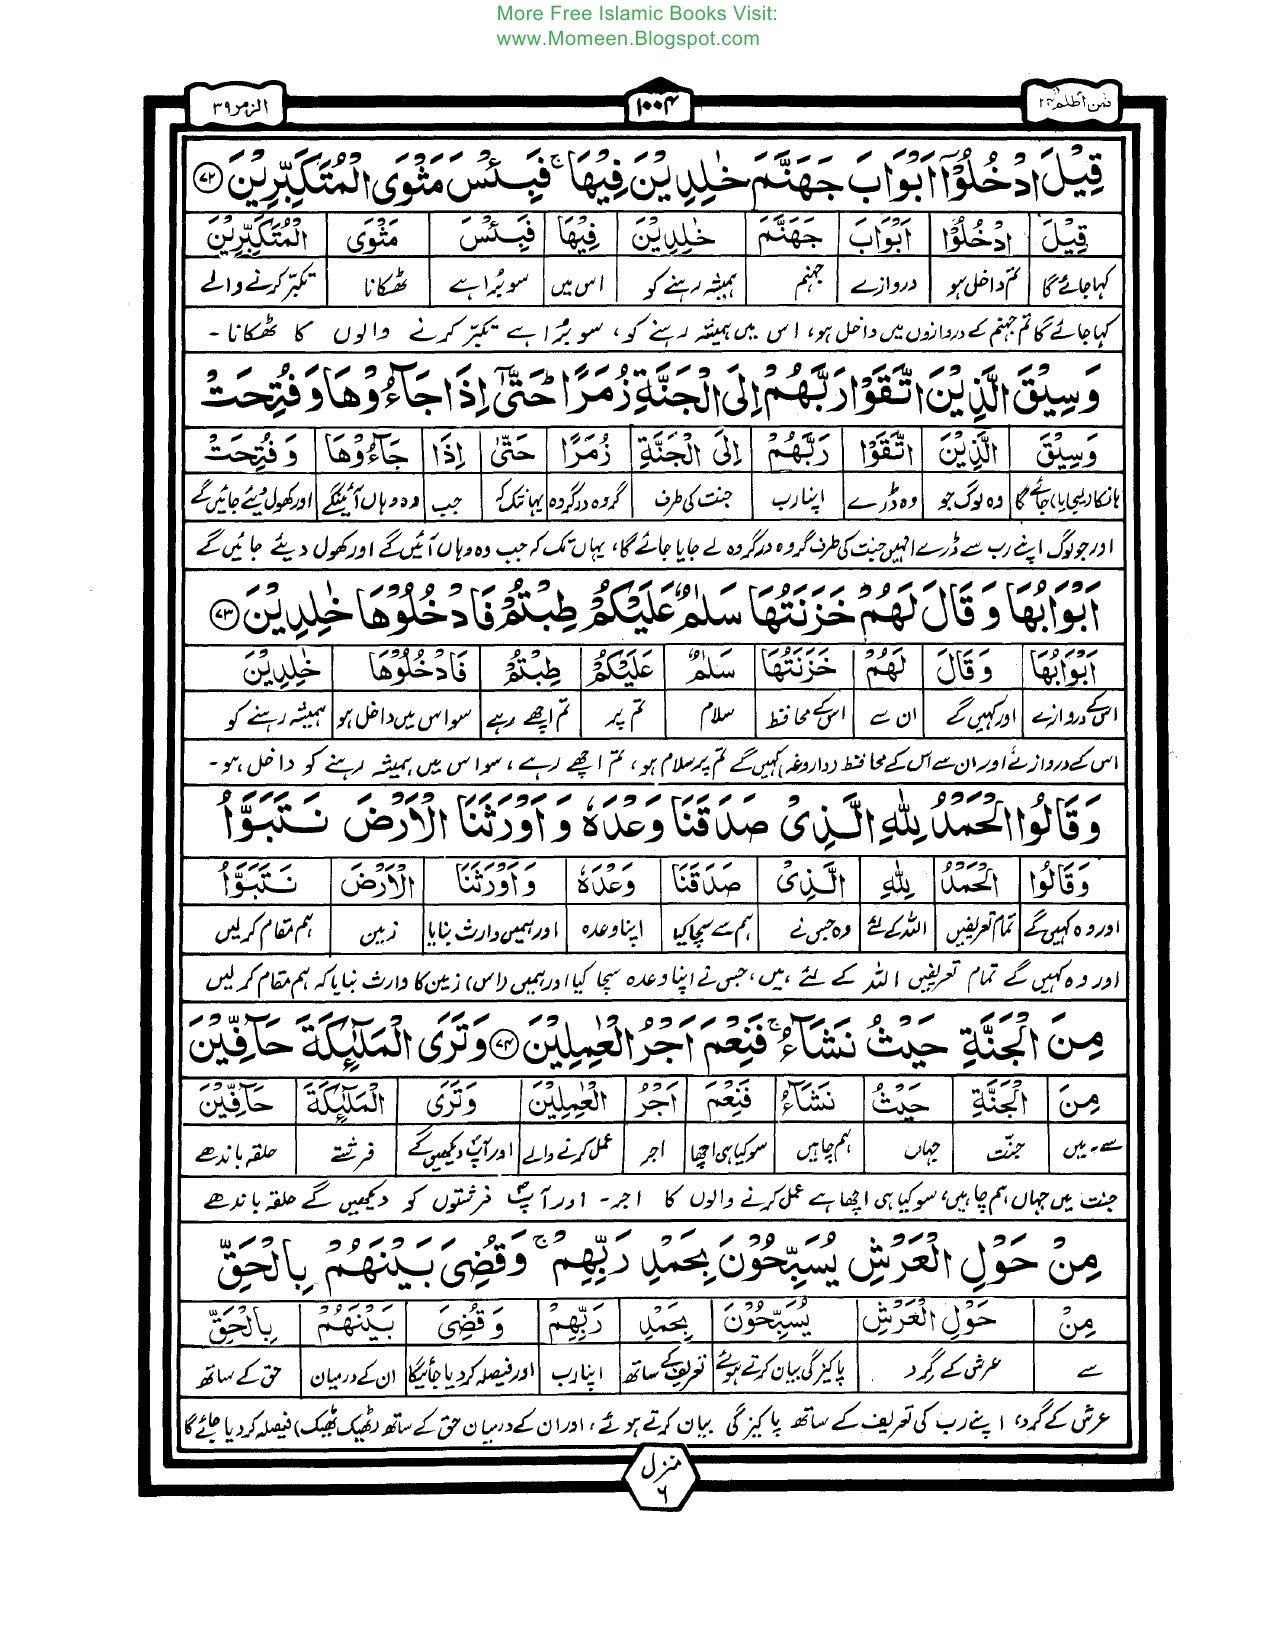 More Free Islamic Books Visit:
www.Momeen.Blogspot.com
فمن اظلم ۲۴ ۱۰۰۴ الزمر ۳۹
قِيْلَ ادْخُلُوْٓا اَبْوَابَ جَهَنَّمَ خٰلِدِيْنَ فِيْهَا ۚ فَبِئْسَ مَثْوَى الْمُتَكَبِّرِيْنَ ۷۲
قِيْلَ ادْخُلُوْٓا اَبْوَابَ جَهَنَّمَ خٰلِدِيْنَ فِيْهَا فَبِئْسَ مَثْوَى الْمُتَكَبِّرِيْنَ
کہا جائے گا تم داخل ہو دروازے جہنم ہمیشہ رہنے کو اس میں سو بُرا ہے ٹھکانا تکبّر کرنے والے
کہا جائے گا تم جہنم کے دروازوں میں داخل ہو، اس میں ہمیشہ رہنے کو، سو بُرا ہے تکبّر کرنے والوں کا ٹھکانا -
وَسِيْقَ الَّذِيْنَ اتَّقَوْا رَبَّهُمْ اِلَى الْجَنَّةِ زُمَرًا ۭ حَتّٰٓى اِذَا جَآءُوْهَا وَفُتِحَتْ
وَسِيْقَ الَّذِيْنَ اتَّقَوْا رَبَّهُمْ اِلَى الْجَنَّةِ زُمَرًا حَتّٰى اِذَا جَآءُوْهَا وَفُتِحَتْ
ہانکا دلیجایا) جائے گا وہ لوگ جو وہ ڈرے اپنا رب جنت کی طرف گروہ در گروہ یہانتک کہ جب وہ وہاں آئینگے اور کھول دیئے جائیں گے
اور جو لوگ اپنے رب سے ڈرے انہیں جنت کی طرف گروہ در گروہ لے جایا جائے گا، یہاں تک کہ جب وہ وہاں آئیں گے اور کھول دیئے جائیں گے
اَبْوَابُهَا وَقَالَ لَهُمْ خَزَنَتُهَا سَلٰمٌ عَلَيْكُمْ طِبْتُمْ فَادْخُلُوْهَا خٰلِدِيْنَ ۷۳
اَبْوَابُهَا وَقَالَ لَهُمْ خَزَنَتُهَا سَلٰمٌ عَلَيْكُمْ طِبْتُمْ فَادْخُلُوْهَا خٰلِدِيْنَ
اس کے دروازے اور کہیں گے ان سے اس کے محافظ سلام تم پر تم اچھے رہے سو اس میں داخل ہو ہمیشہ رہنے کو
اس کے دروازے اور ان سے اس کے محافظ (داروغہ) کہیں گے تم پر سلام ہو، تم اچھے رہے، سو اس میں ہمیشہ رہنے کو داخل ہو -
وَقَالُوا الْحَمْدُ لِلّٰهِ الَّذِيْ صَدَقَنَا وَعْدَهٗ وَاَوْرَثَنَا الْاَرْضَ نَتَبَوَّاُ
وَقَالُوا الْحَمْدُ لِلّٰهِ الَّذِيْ صَدَقَنَا وَعْدَهٗ وَاَوْرَثَنَا الْاَرْضَ نَتَبَوَّاُ
اور وہ کہیں گے تمام تعریفیں اللہ کے لئے وہ جس نے ہم سے سچا کیا اپنا وعدہ اور ہمیں وارث بنایا زمین ہم مقام کر لیں
اور وہ کہیں گے تمام تعریفیں اللہ کے لئے ہیں، جس نے اپنا وعدہ سچا کیا اور ہمیں (اس) زمین کا وارث بنایا کہ ہم مقام کر لیں
مِنَ الْجَنَّةِ حَيْثُ نَشَآءُ ۚ فَنِعْمَ اَجْرُ الْعٰمِلِيْنَ ۷۴ وَتَرَى الْمَلٰٓئِكَةَ حَآفِّيْنَ
مِنَ الْجَنَّةِ حَيْثُ نَشَآءُ فَنِعْمَ اَجْرُ الْعٰمِلِيْنَ وَتَرَى الْمَلٰٓئِكَةَ حَآفِّيْنَ
سے - میں جنّت جہاں ہم چاہیں سو کیا ہی اچھا اجر عمل کرنے والے اور آپؐ دیکھیں گے فرشتے حلقہ باندھے
جنت میں جہاں ہم چاہیں، سو کیا ہی اچھا ہے عمل کرنے والوں کا اجر - اور آپؐ فرشتوں کو دیکھیں گے حلقہ باندھے
مِنْ حَوْلِ الْعَرْشِ يُسَبِّحُوْنَ بِحَمْدِ رَبِّهِمْ ۚ وَقُضِيَ بَيْنَهُمْ بِالْحَقِّ
مِنْ حَوْلِ الْعَرْشِ يُسَبِّحُوْنَ بِحَمْدِ رَبِّهِمْ وَقُضِيَ بَيْنَهُمْ بِالْحَقِّ
سے عرش کے گرد پاکیزگی بیان کرتے ہوئے تعریف کے ساتھ اپنا رب اور فیصلہ کر دیا جائیگا ان کے درمیان حق کے ساتھ
عرش کے گرد، اپنے رب کی تعریف کے ساتھ پاکیزگی بیان کرتے ہوئے، اور ان کے درمیان حق کے ساتھ (ٹھیک ٹھیک) فیصلہ کر دیا جائے گا
منزل ۶